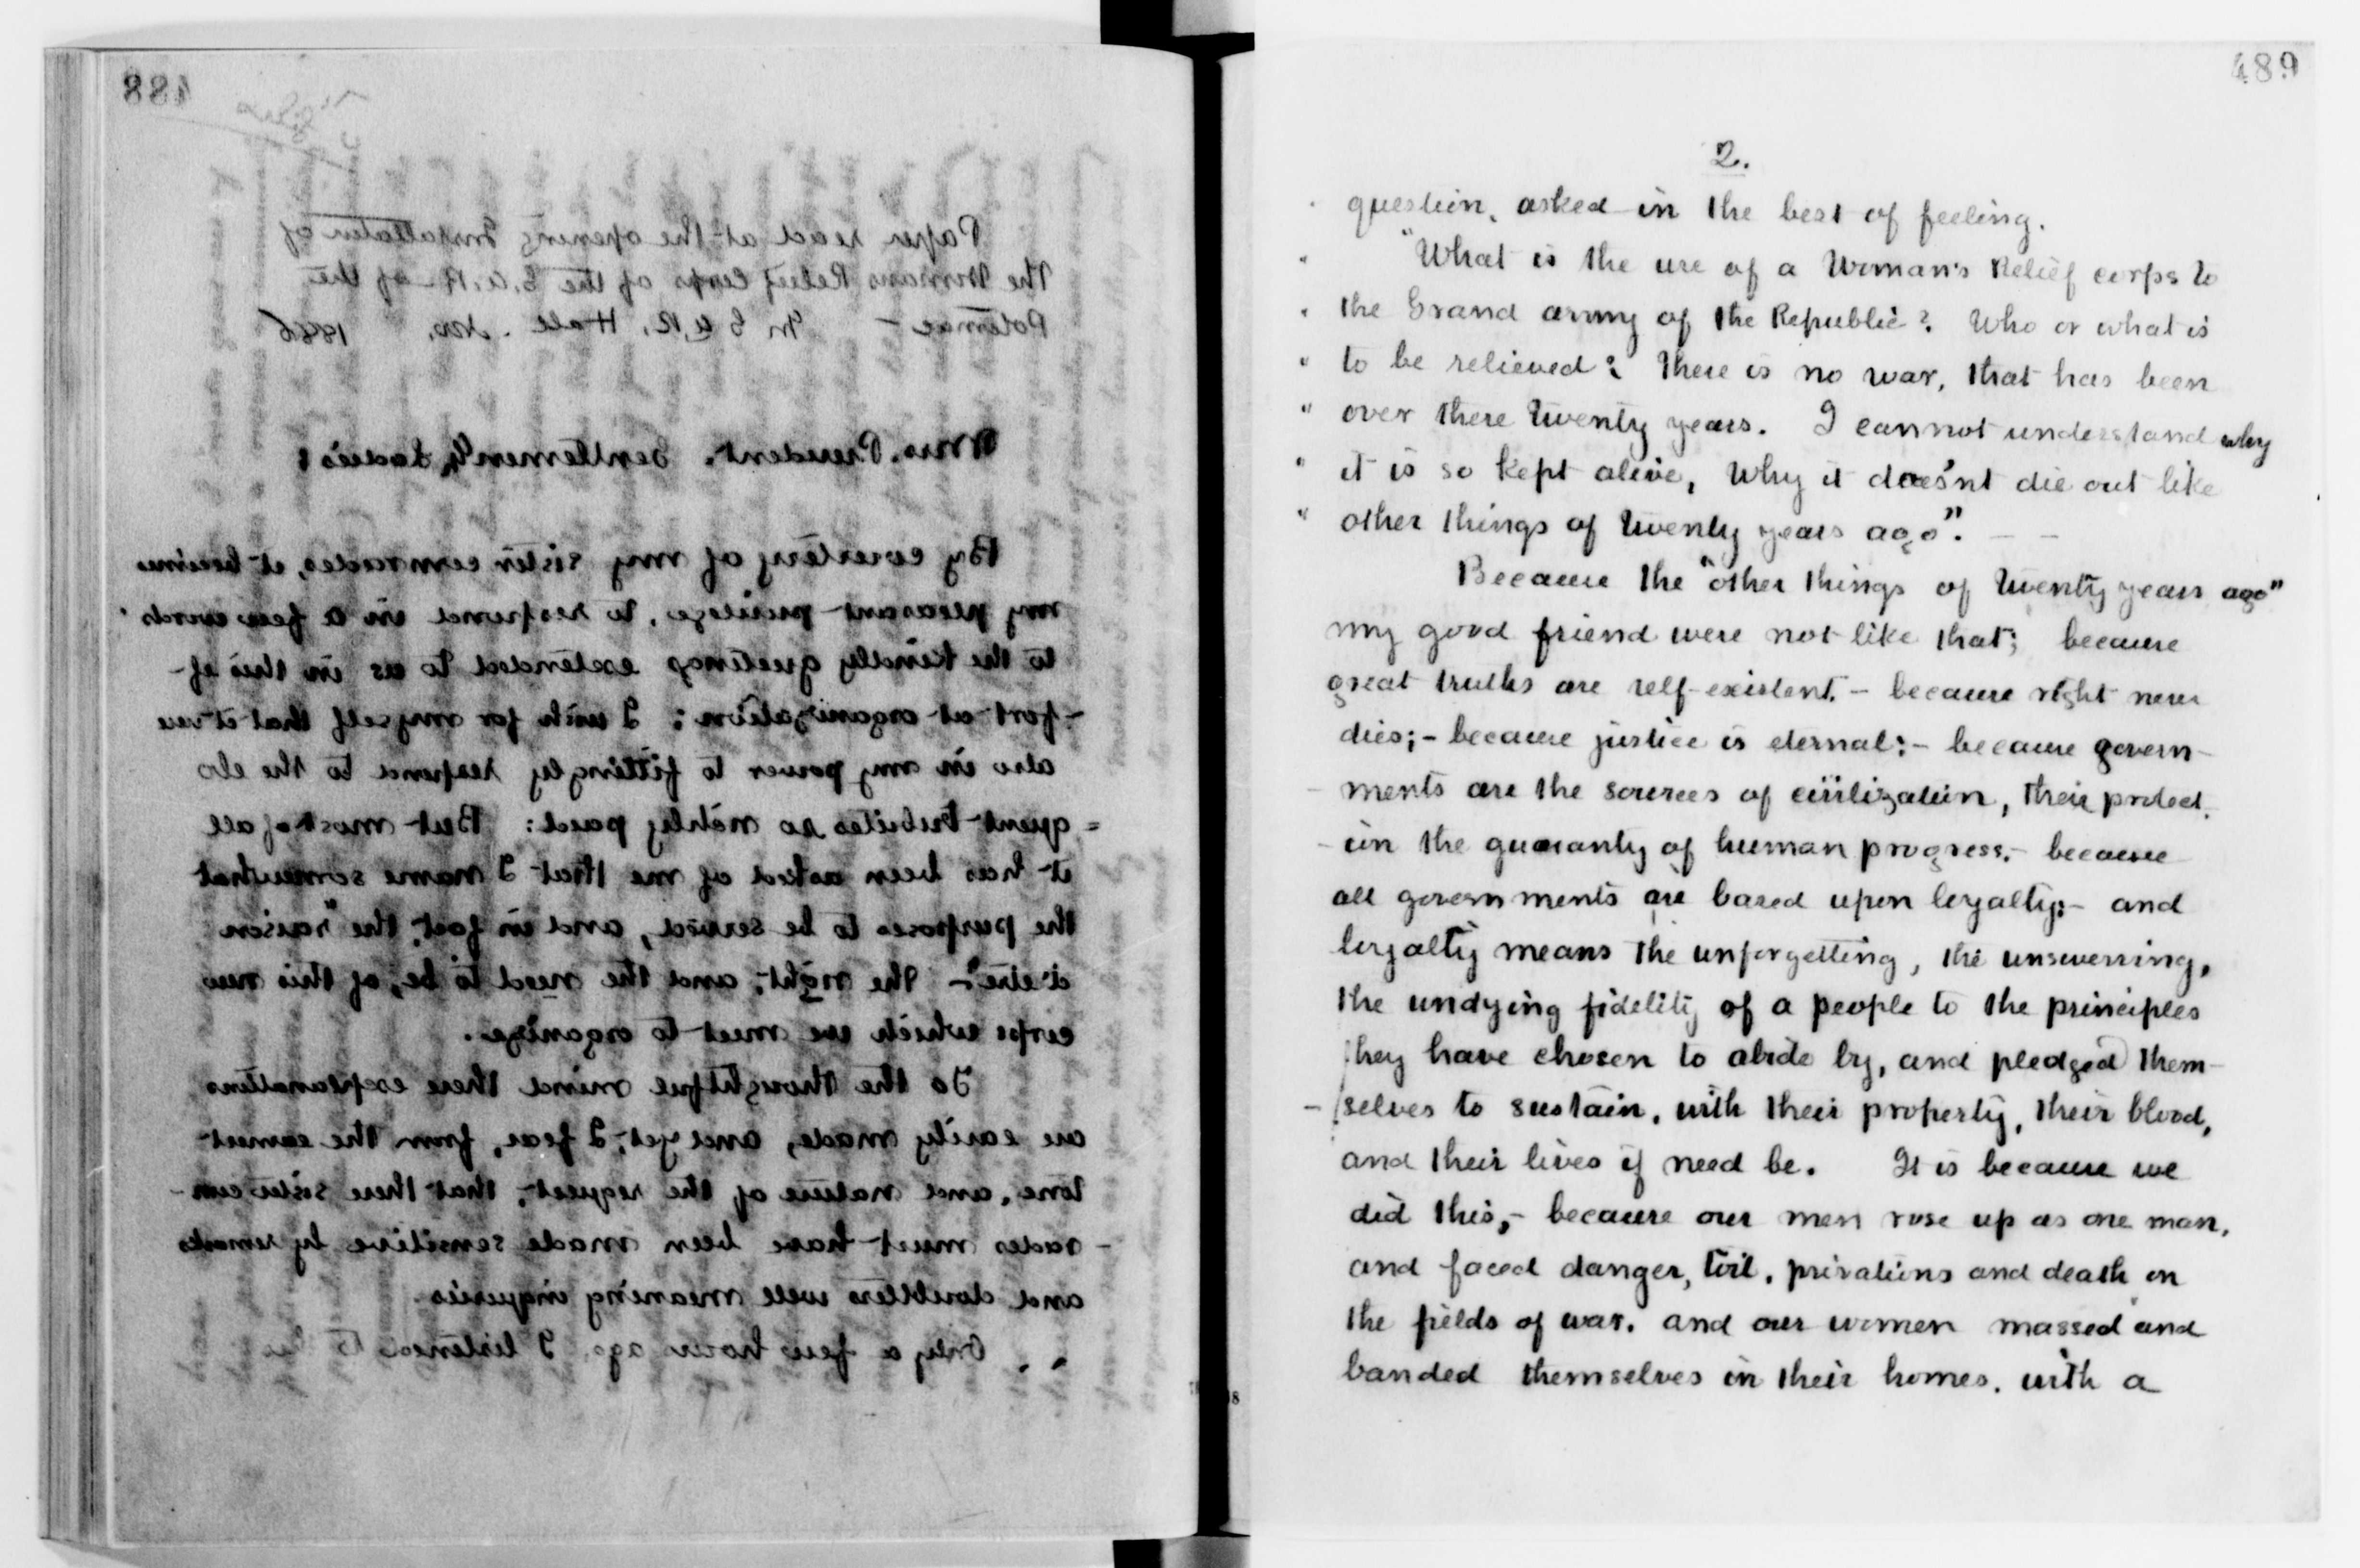 488
Paper read at the opening Installation of
The Womans Relief Corps of the G.A.R. of the
Potomac — In G.A.R. Hall. Nov. 1886
Mrs. President. Gentlemen & Ladies:
By courtesy of my sister comrades, it becomes
my pleasant privilege, to respond in a few words
to the kindly greetings extended to us in this ef-
-fort at organization: I wish for myself that it were
also in my power to fittingly respond to the elo
= quent tributes so nobly paid: But most of all
it has been asked of me that I name somewhat
the purposes to be served, and in fact, the "raison
d'etre"- the right, and the need to be, of this new
corps which we meet to organize.
To the thoughtful mind these explanations
are easily made, and yet, I fear, from the earnest
tone, and nature of the request, that these sister com-
-rades must have been made sensitive by remarks
and doubtless well meaning inquiries
Only a few hours ago, I listened to
489
2.
question, asked in the best of feeling.
" "What is the use of a Woman's Relief corps to
" the Grand army of the Republic? Who or what is
" to be relieved? There is no war, that has been
" over these twenty years. I cannot understand why
" it is so kept alive, Why it does'nt die out like
" other things of twenty years ago". — —
Because the "other things of twenty years ago"
my good friend were not like that; because
great truths are self-existent. - because right never
dies; - because justice is eternal: - because govern-
- ments are the sources of civilization, their protect.
- ion the guaranty of human progress. - because
all governments are based upon loyalty: - and
loyalty means the unforgetting, the unswerving,
the undying fidelity of a people to the principles
they have chosen to abide by, and pledged them-
- selves to sustain, with their property, their blood,
and their lives if need be. It is because we
did this, - because our men rose up as one man,
and faced danger, toil, privations and death on
the fields of war. and our women massed and
banded themselves in their homes. with a